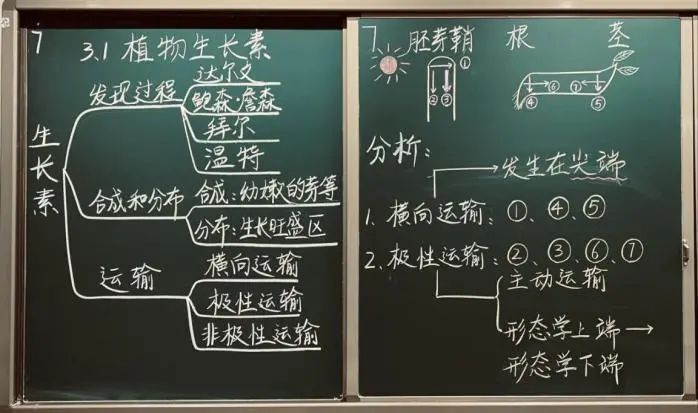 7
3.1 植物生长素
生长素
发现过程
达尔文
鲍森·詹森
拜尔
温特
合成和分布
合成：幼嫩的芽等
分布：生长旺盛区
运输
横向运输
极性运输
非极性运输
7
胚芽鞘 根 茎
①
② ③
④ ⑥ ⑦ ⑤
分析：
发生在尖端
1. 横向运输：①、④、⑤
2. 极性运输：②、③、⑥、⑦
主动运输
形态学上端→
形态学下端